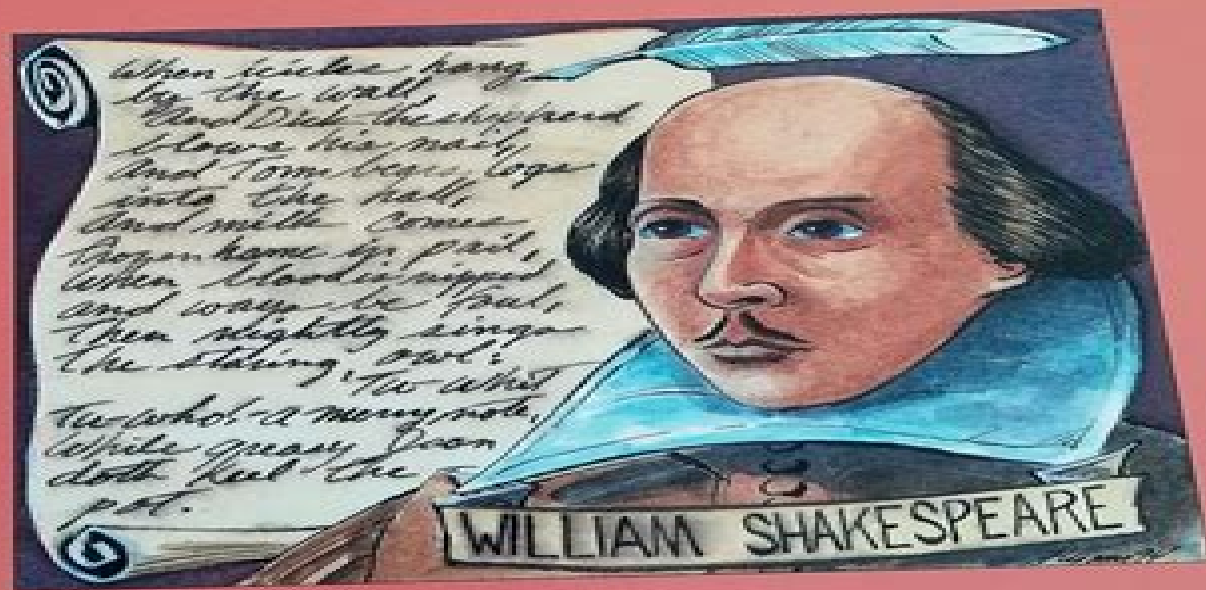 When icicles hang
by the wall
And Dick the shepherd
blows his nail,
And Tom bears logs
into the hall,
And milk comes
frozen home in pail,
When blood is nipped
and ways be foul,
Then nightly sings
the staring owl:
Tu-whit
Tu-who!-a merry note,
While greasy Joan
doth keel the
pot.
WILLIAM SHAKESPEARE